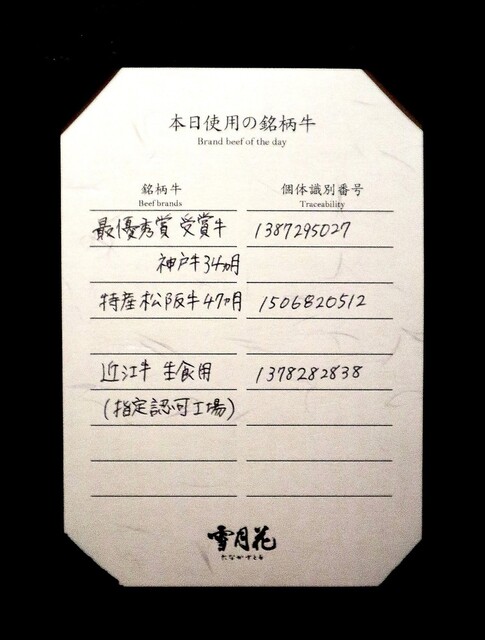 本日使用の銘柄牛
Brand beef of the day
銘柄牛 個体識別番号
Beef brands Traceability
最優秀賞 受賞牛 1387295027
神戸牛34ヵ月
特産松阪牛47ヶ月 1506820512
近江牛 生食用 1378282838
(指定認可工場)
雪月花
たなかさとる